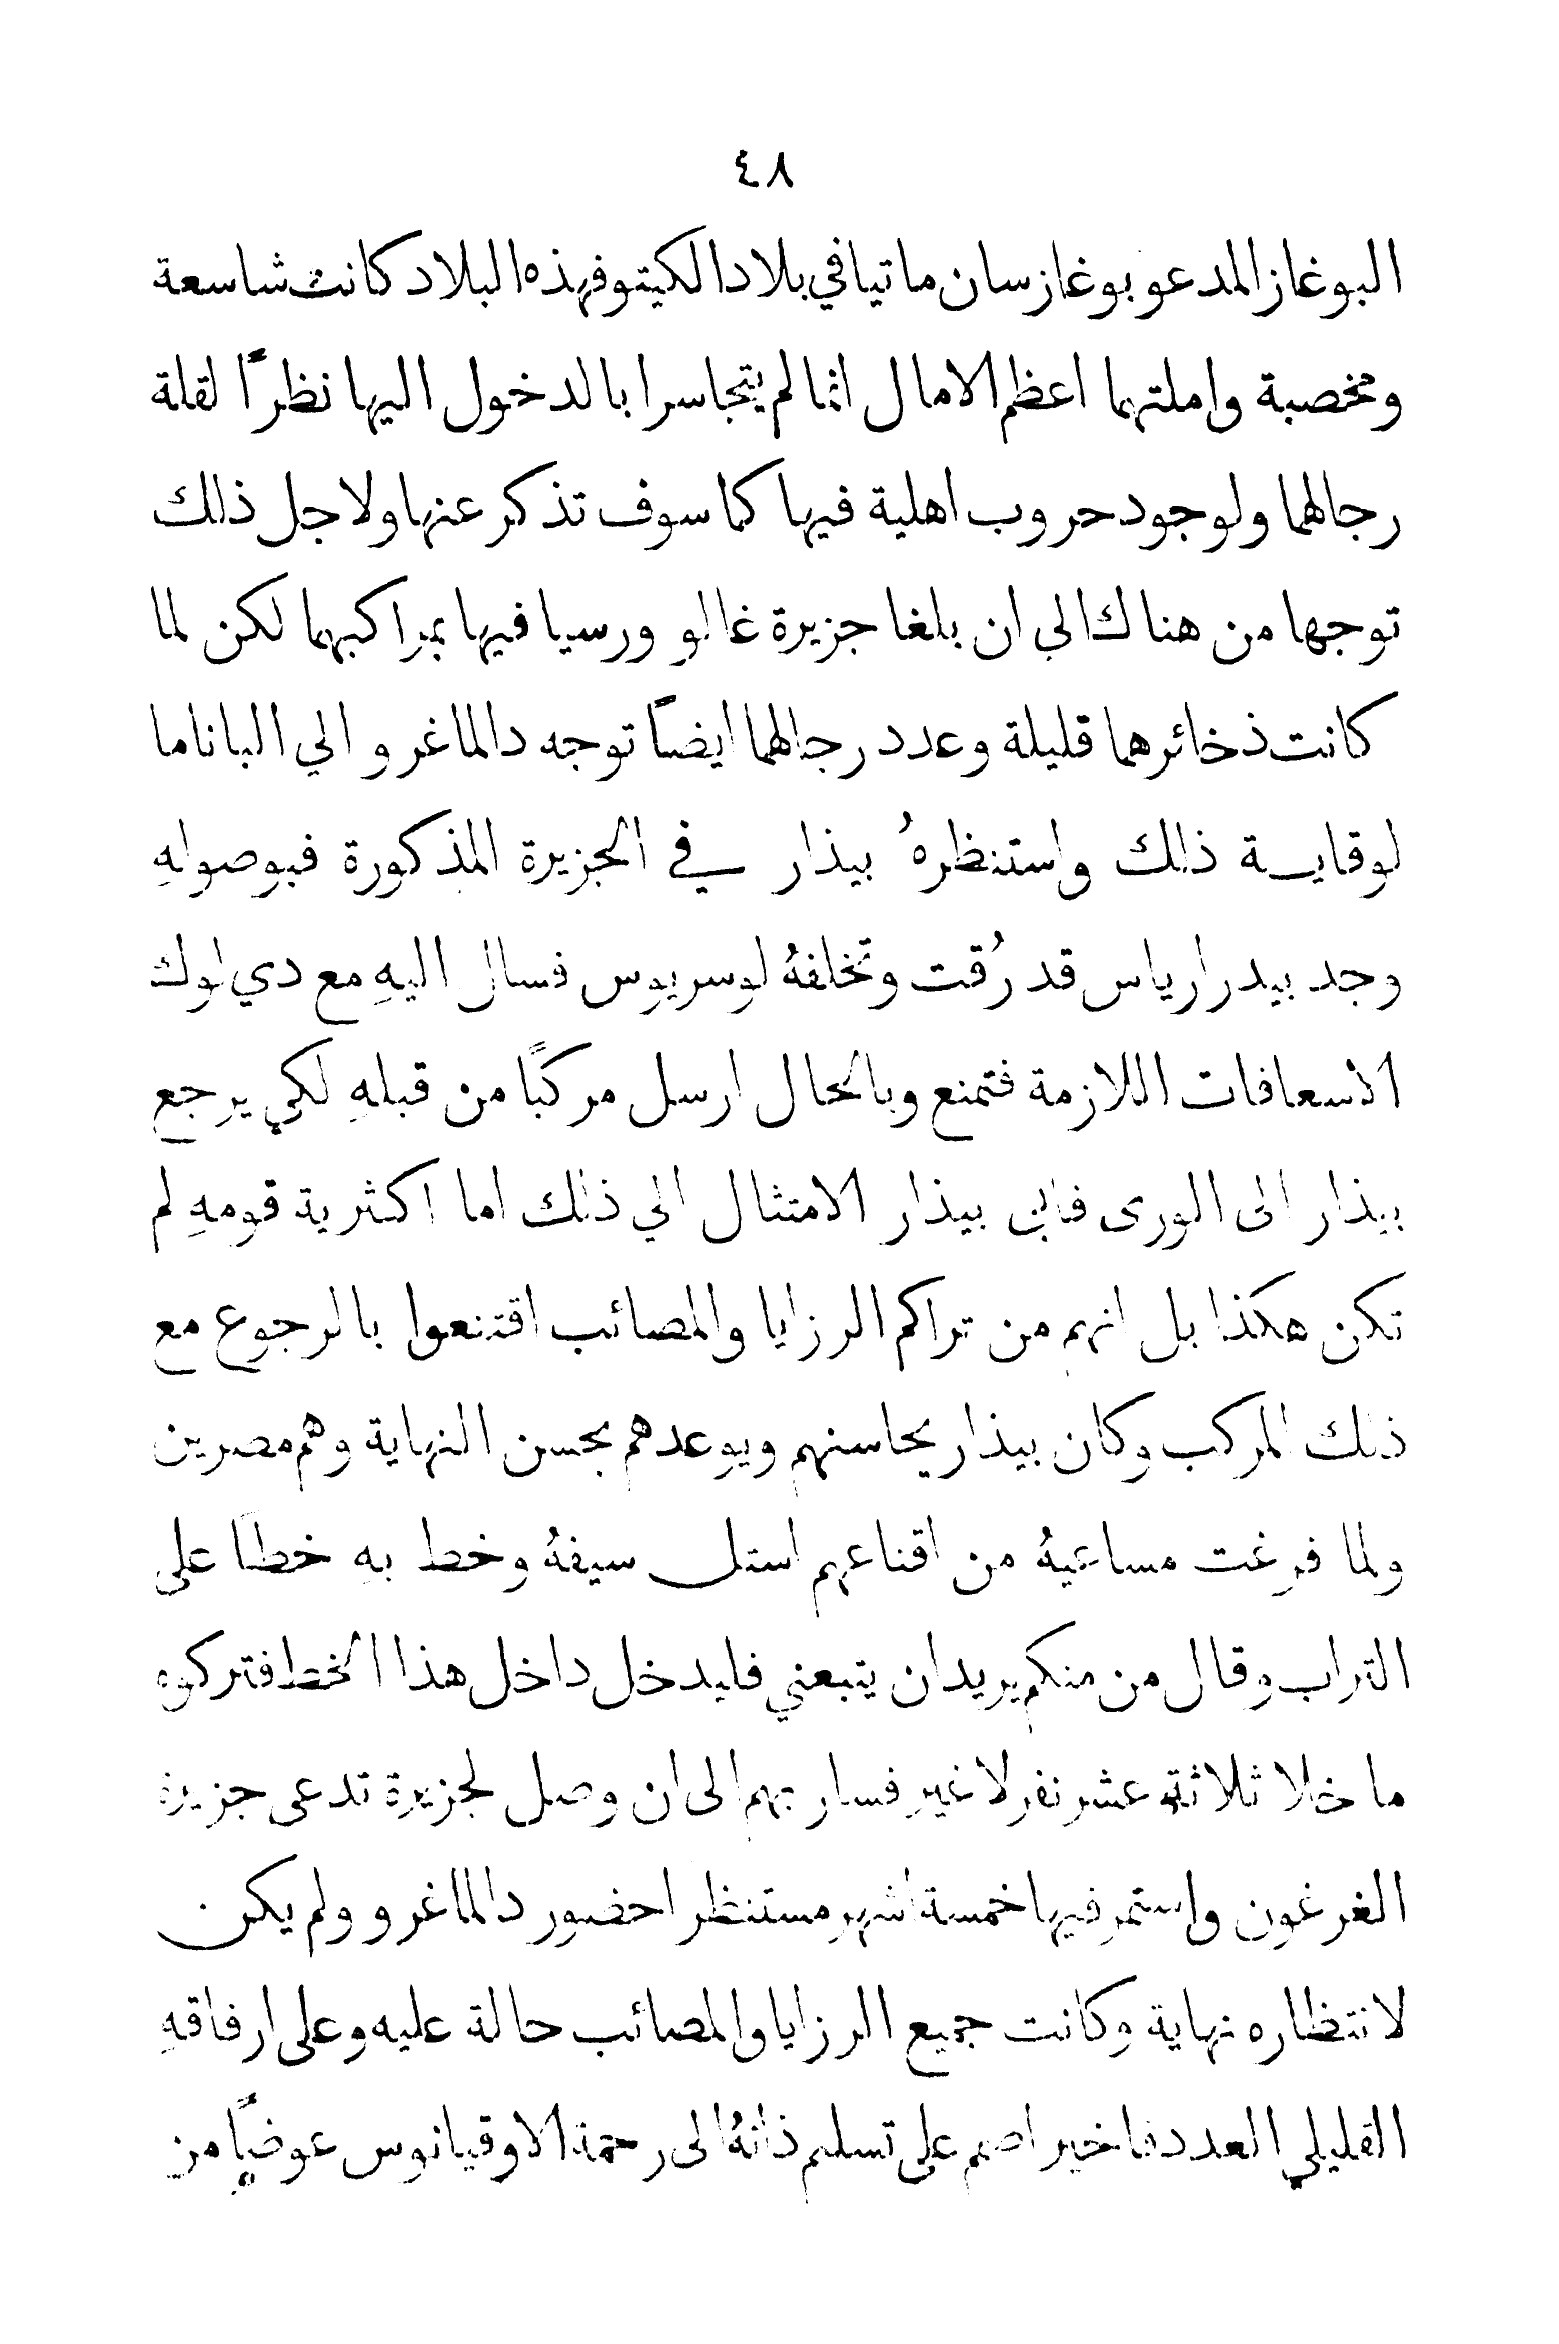 ٤٨
البوغاز المدعو بوغاز سان ماتيا في بلاد الكيتو فهذه البلاد كانت شاسعة
ومخصبة واملتهما اعظم الامال انما لم يتجاسرا بالدخول اليها نظرًا لقلة
رجالهما ولوجود حروب اهلية فيها كما سوف تذكر عنها ولاجل ذلك
توجها من هناك الي ان بلغا جزيرة غالو ورسيا فيها بمراكبهما لكن لما
كانت ذخائرهما قليلة وعدد رجالهما ايضًا توجه دالماغرو الي الباناما
لوقاية ذلك واستنظرهُ بيذار في الجزيرة المذكورة فبوصولهِ
وجد بيدرارياس قد رُقت وتخلفهُ لوسريوس فسال اليهِ مع دي لوك
الاسعافات اللازمة فتمنع وبالحال ارسل مركبًا من قبلهِ لكي يرجع
بيذار الى الورى فابى بيذار الامتثال الي ذلك اما اكثرية قومهِ لم
تكن هكذا بل انهم من تراكم الرزايا والمصائب اقتنعوا بالرجوع مع
ذلك المركب وكان بيذار يحاسنهم ويوعدهم بحسن النهاية وهم مصرين
ولما فرغت مساعيهُ من اقناعهم استل سيفهُ وخط بهِ خطًا على
التراب وقال من منكم يريد ان يتبعني فليدخل داخل هذا الخط فتركوه
ما خلا ثلاثة عشر نفر لا غير فسار بهم الى ان وصل لجزيرة تدعى جزيرة
الغرغون واستمر فيها خمسة اشهر مستنظرا حضور دالماغرو ولم يكن
لانتظاره نهاية وكانت جميع الرزايا والمصائب حالة عليه وعلى ارفاقهِ
القليلي العدد فاخيرا صمم على تسليم ذاتهُ الى رحمة الاوقيانوس عوضًا من